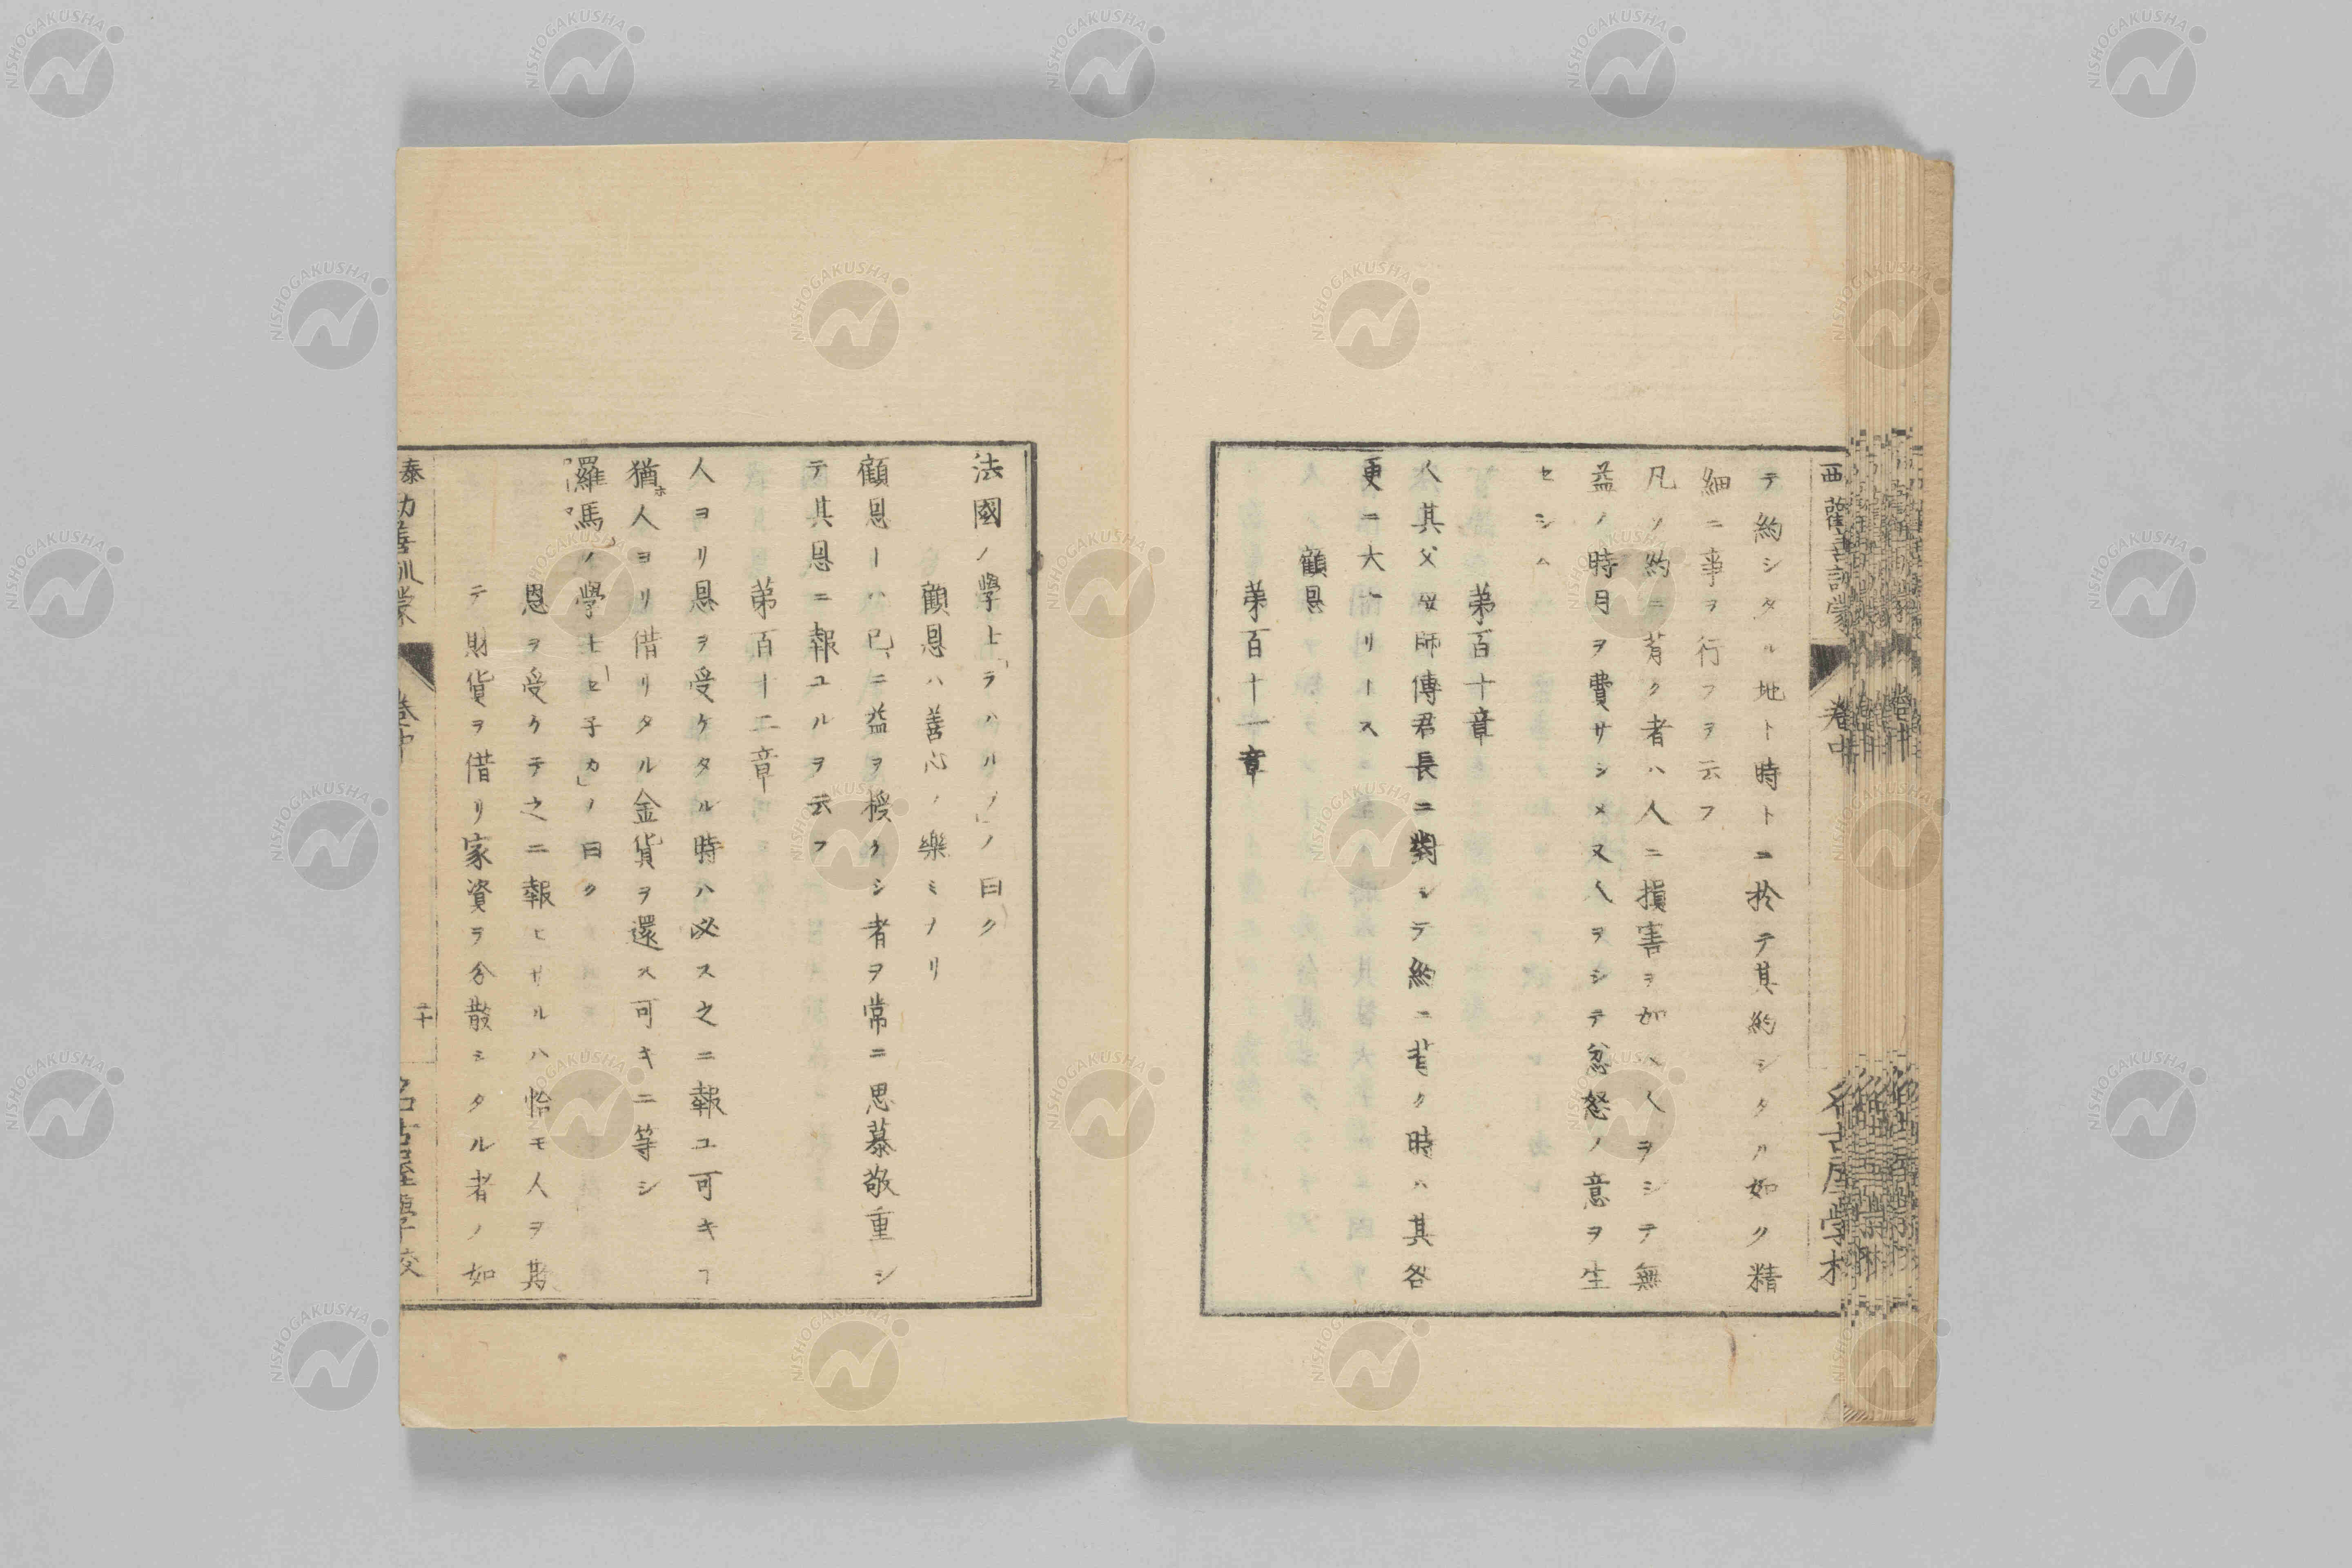 テ約シタル地ト時トニ於テ其約シタル如ク精
細ニ事ヲ行フヲ云フ
凡ソ約ニ背ク者ハ人ニ損害ヲ加ヘ人ヲシテ無
益ノ時日ヲ費サシメ又人ヲシテ忿怒ノ意ヲ生
セシム
第百十章
人其父母師傅君長ニ對シテ約ニ背ク時ハ其咎
更ニ大ナリトス
顧恩
第百十一章
法國ノ學士「ラハルプ」ノ曰ク
顧恩ハ善心ノ樂ミナリ
顧恩トハ己ニ益ヲ授ケシ者ヲ常ニ思慕敬重シ
テ其恩ニ報ユルヲ云フ
第百十二章
人ヨリ恩ヲ受ケタル時ハ必ス之ニ報ユ可キヿ
猶ホ人ヨリ借リタル金貨ヲ還ス可キニ等シ
羅馬ノ學士「セ子カ」ノ曰ク
恩ヲ受ケテ之ニ報ヒサルハ恰モ人ヲ欺
テ財貨ヲ借リ家資ヲ分散シタル者ノ如
泰 勸善訓蒙 巻中 二十 名古屋學校
西 勸善訓蒙 巻中 名古屋學校
NISHOGAKUSHA